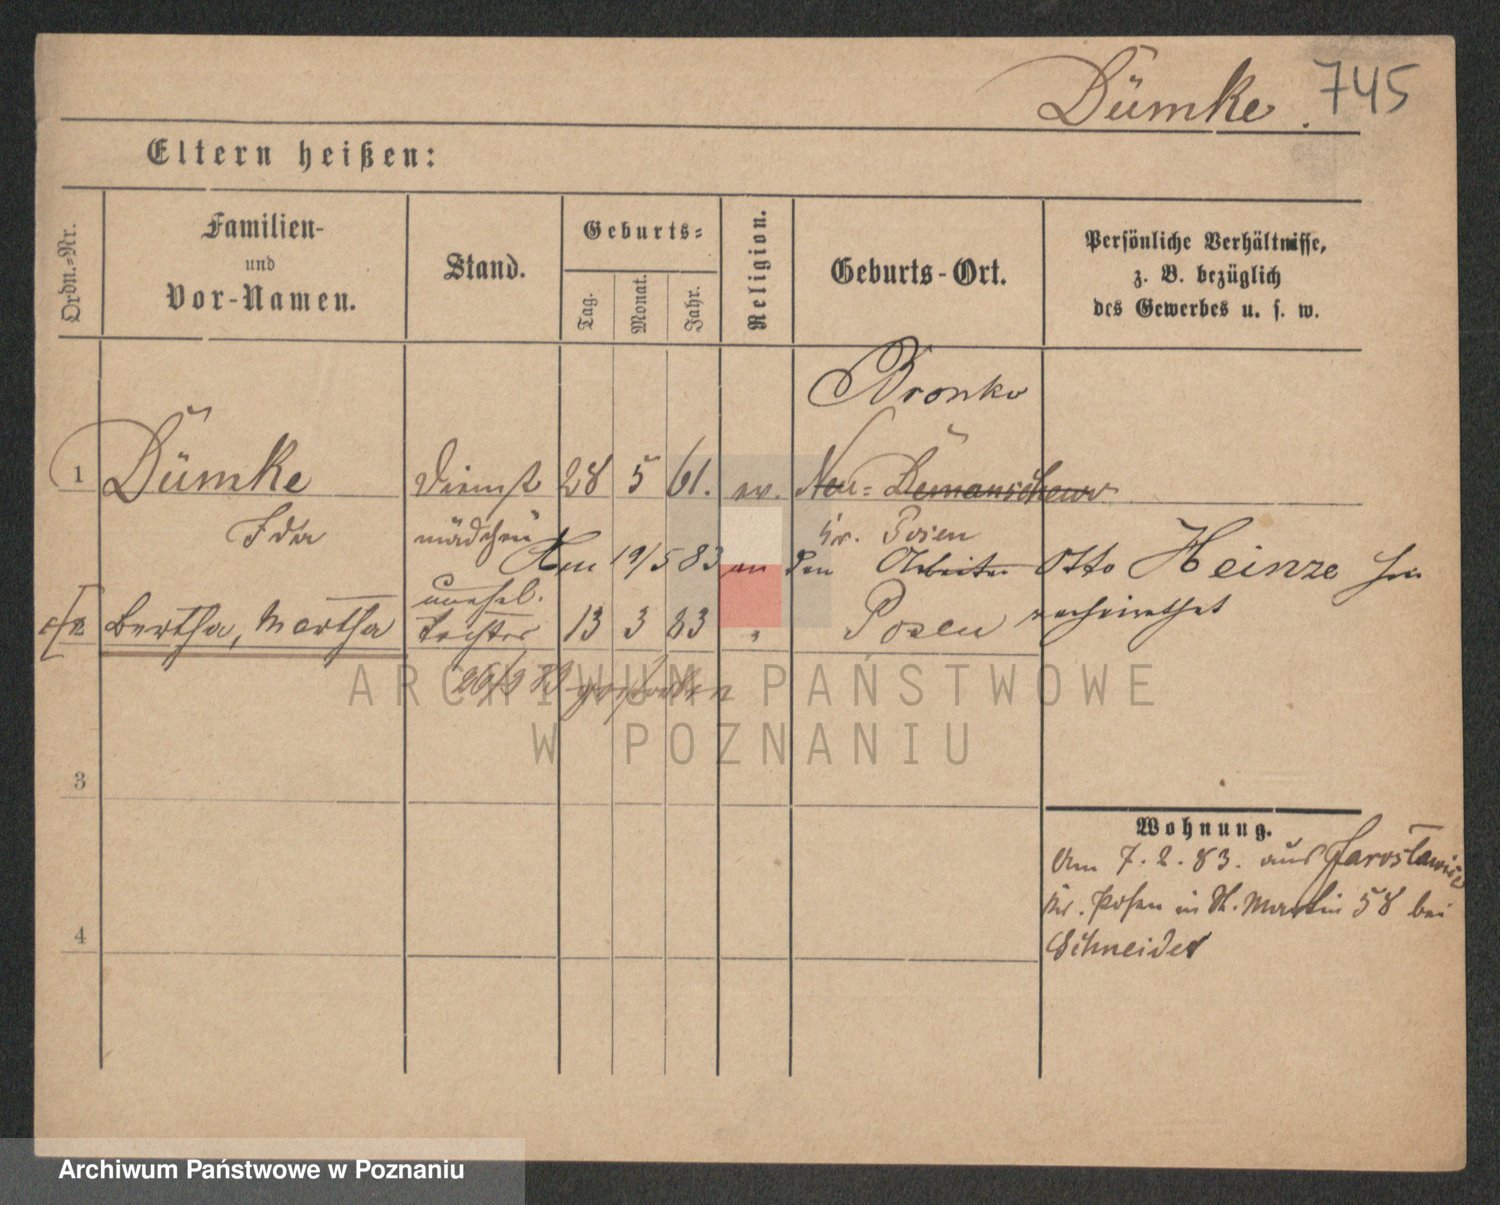 Dümke. 745
Eltern heißen:
Ordn.-Nr.
Familien-
und
Vor-Namen.
Stand.
Geburts-
Tag.
Monat.
Jahr.
Religion.
Geburts-Ort.
Persönliche Verhältnisse,
z. B. bezüglich
des Gewerbes u. s. w.
Bronko
1 Dümke Dienst 28 5 61. ev. Neu-Demanschewo
Ida mädchen Kr. Posen
Am 19/5 83 an den Arbeiter Otto Heinze
unehel.
2 Bertha, Martha Tochter 13 3 83 " Posen verheirathet
26/3 83 gestorben
ARCHIWUM PAŃSTWOWE
W POZNANIU
3
Wohnung.
Am 7.2.83. aus Jarosławiec
Kr. Posen in St. Martin 58 bei
4
Schneider
Archiwum Państwowe w Poznaniu